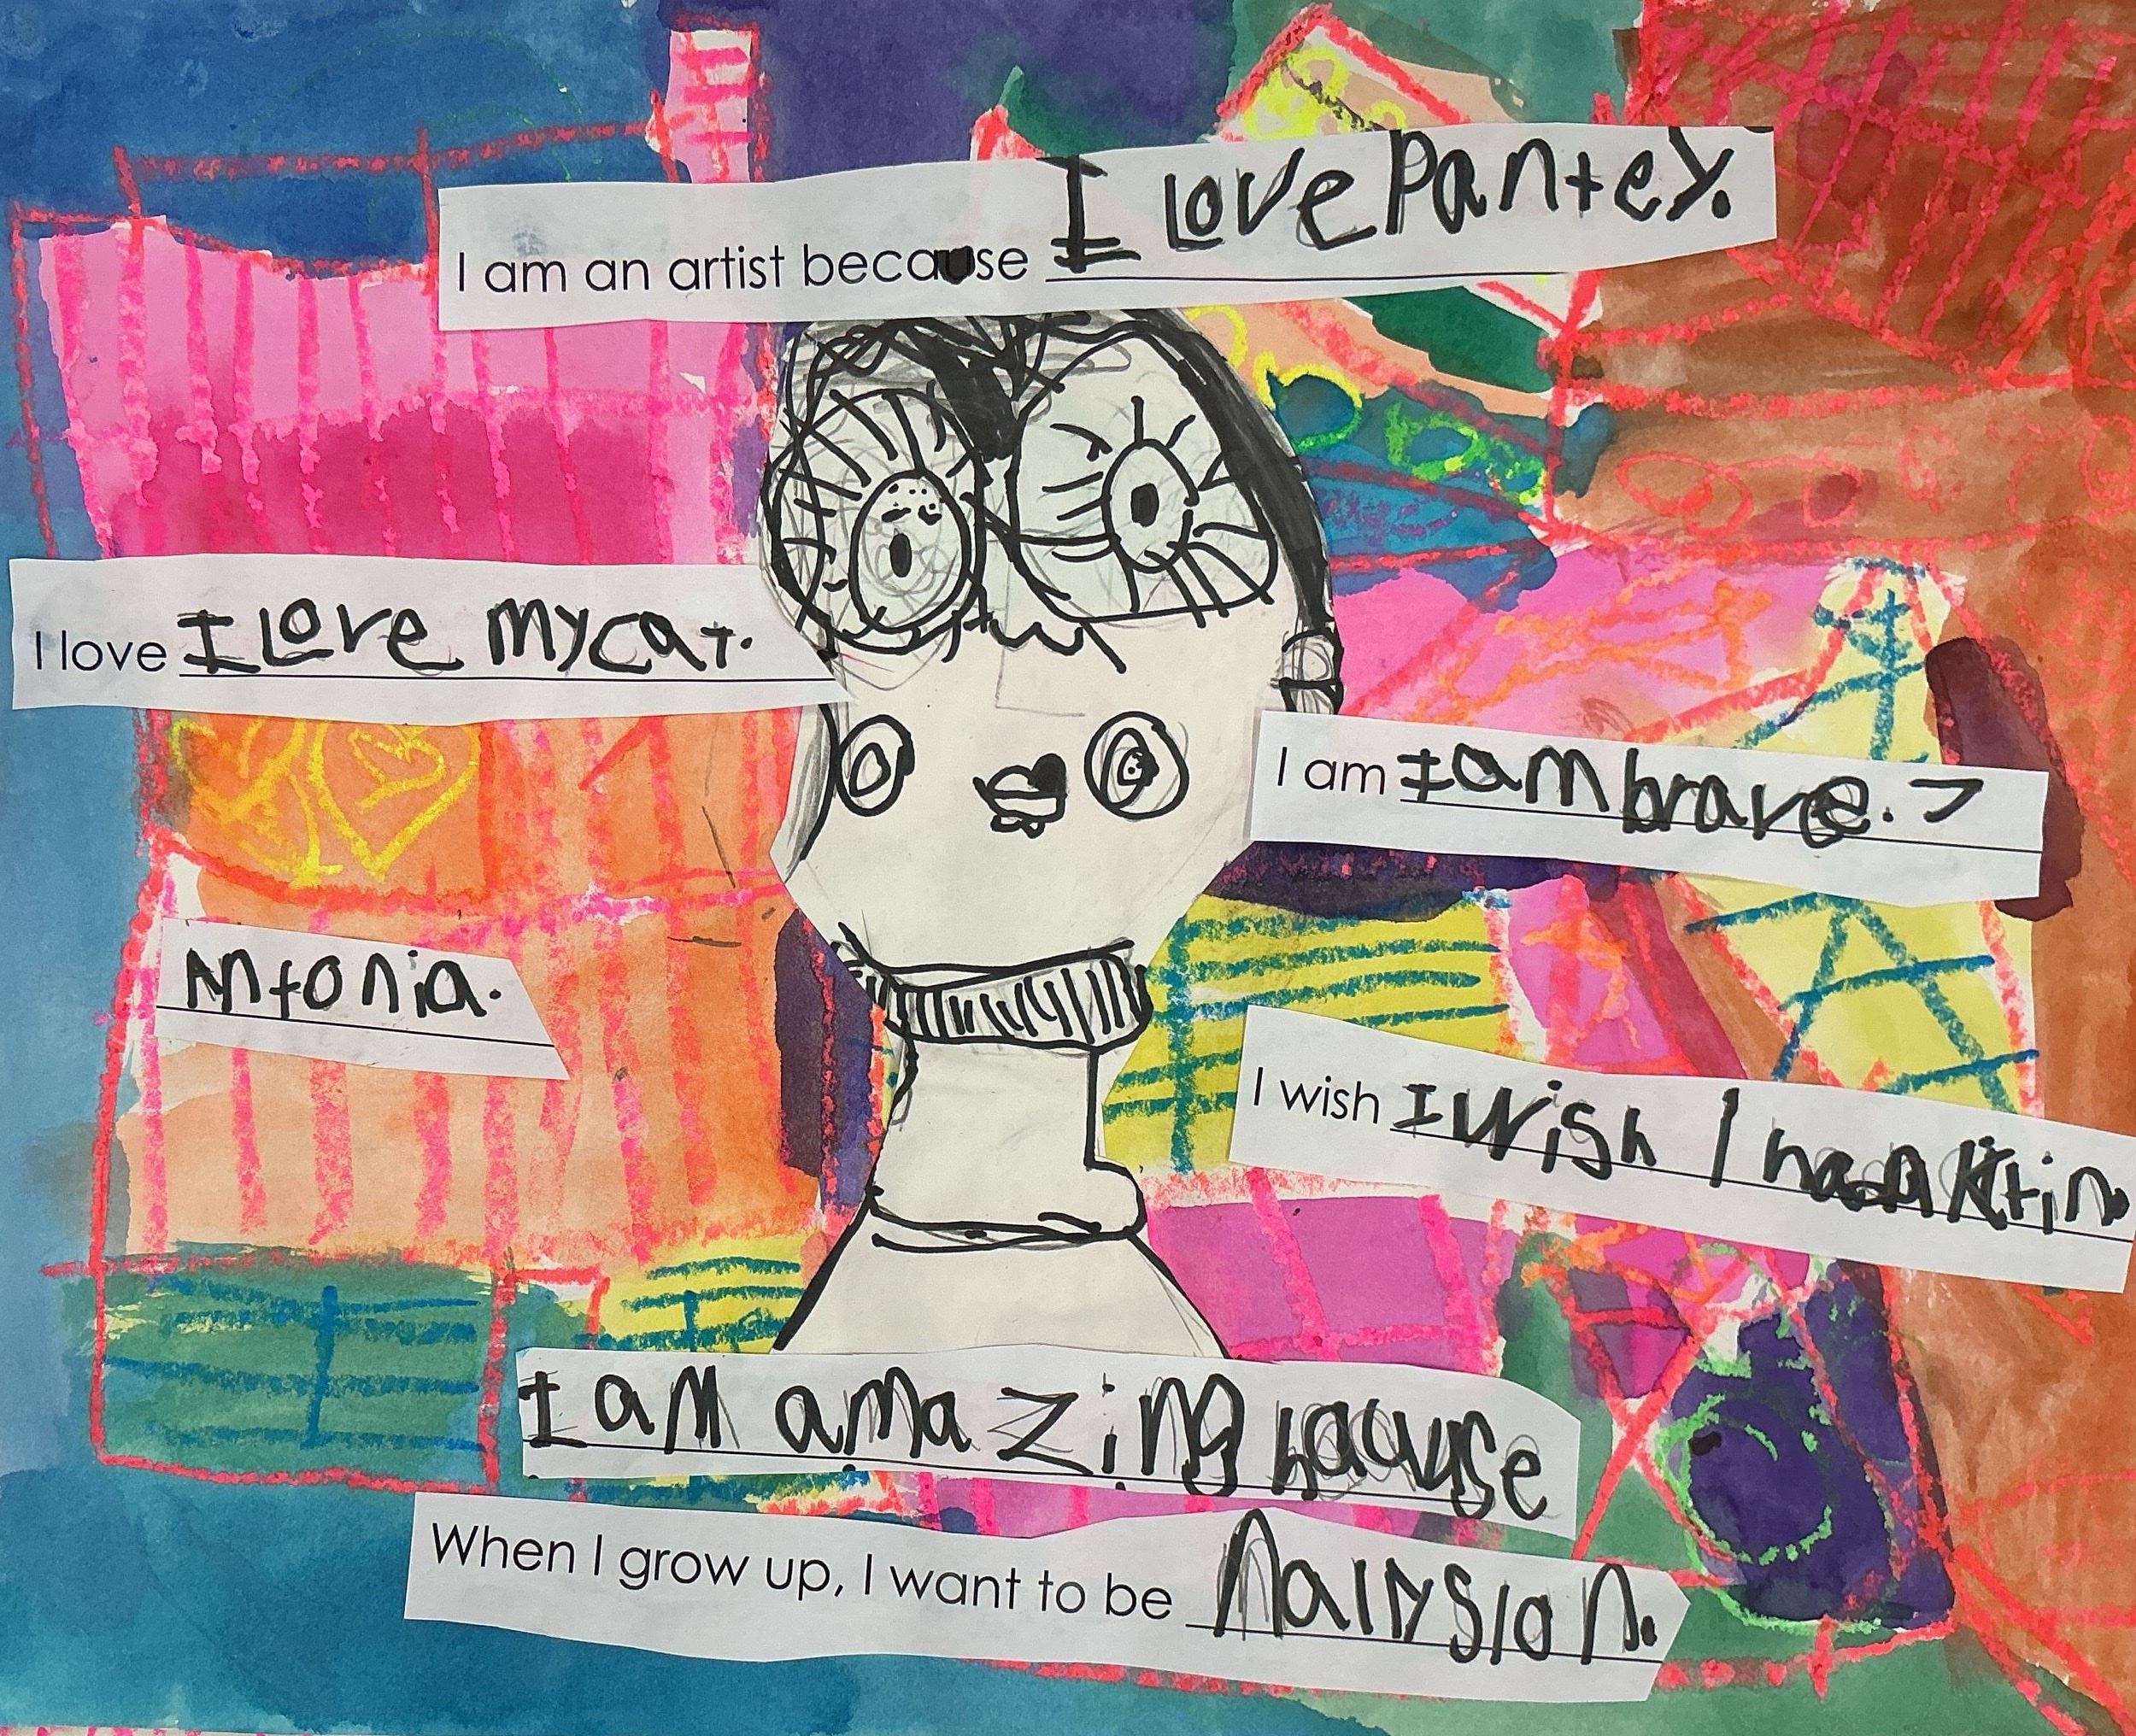 I am an artist because I Love Pantey.
I love I Love my cat.
I am I am brave.
Antonia.
I wish I Wish I
I am amazing
When I grow up, I want to be